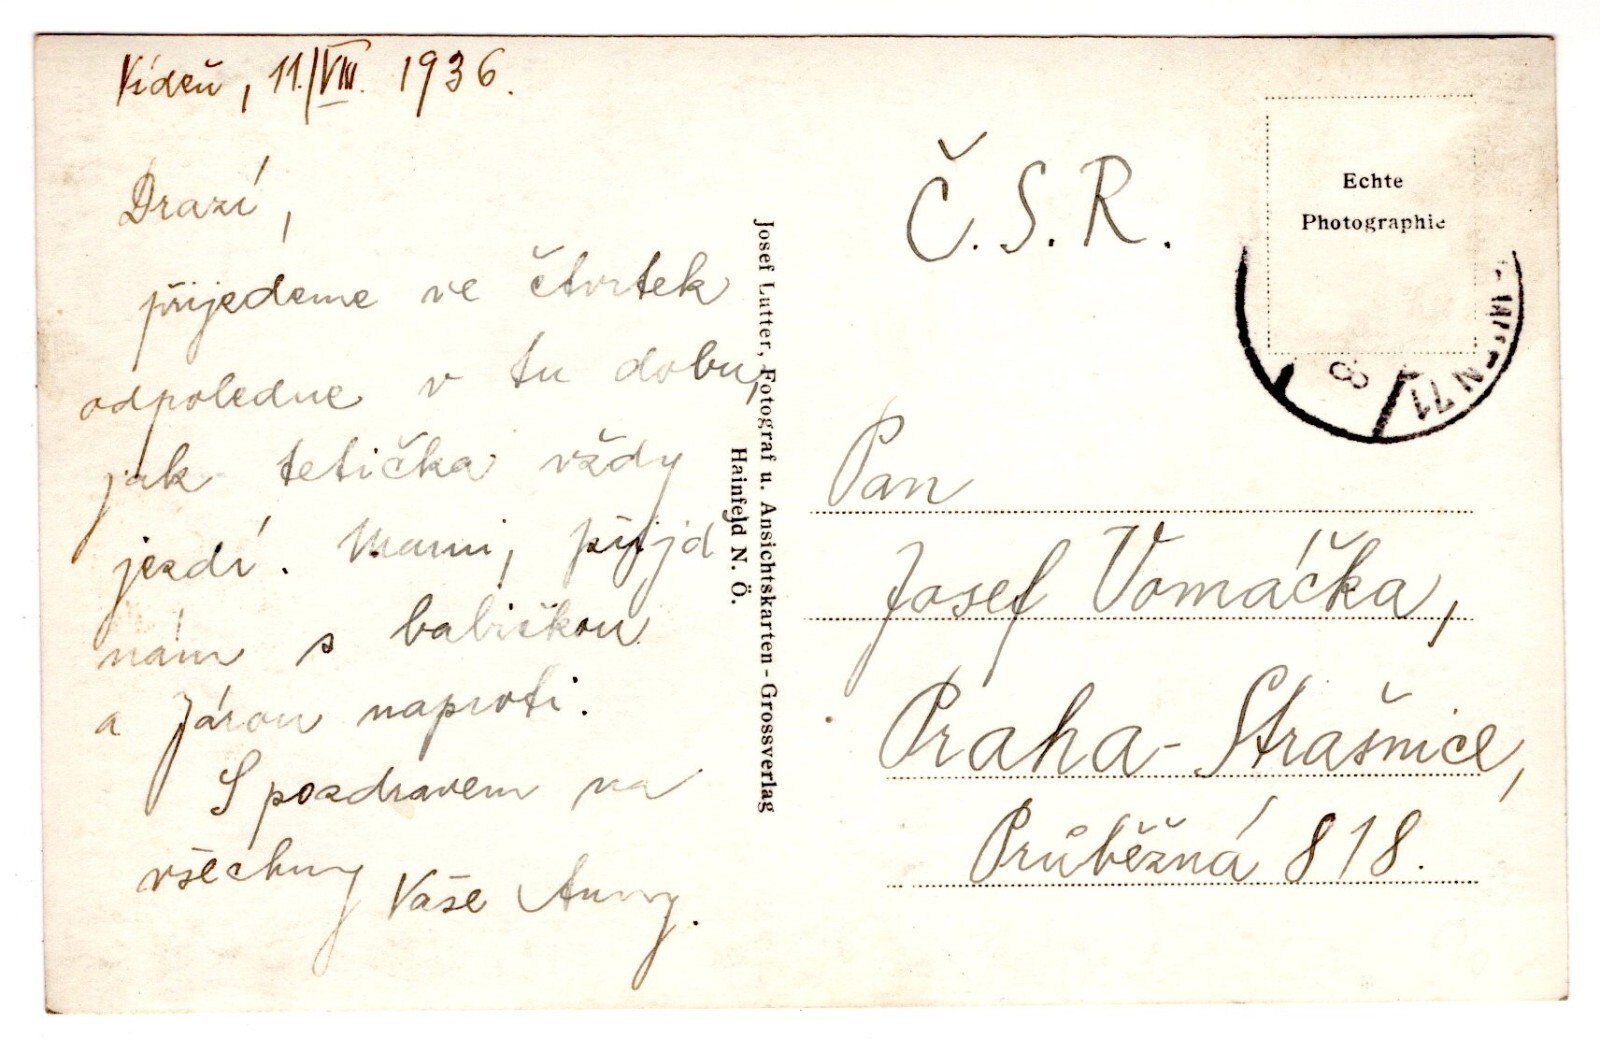 Vídeň, 11./VIII. 1936.
Drazí,
přijedeme ve čtvrtek
odpoledne v tu dobu,
jak tetička vždy
jezdí. Mami, přijď
nám s babičkou
a Járou naproti.
S pozdravem na
všechny Vaše Anny.
Josef Lutter, Fotograf u. Ansichtskarten-Grossverlag
Hainfeld N. Ö.
Č. S. R.
Echte
Photographie
71
8
Pan
Josef Vomáčka,
Praha-Strašnice,
Průběžná 818.